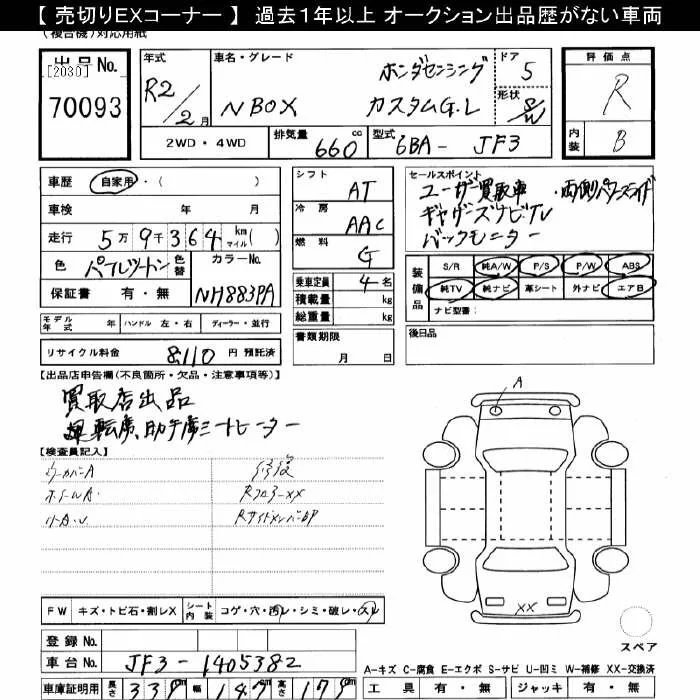 【 売切りEXコーナー 】 過去1年以上 オークション出品歴がない車両
(複合機)対応用紙
出品No. [2030] 70093
年式 R2/2月
車名・グレード NBOX ホンダセンシング カスタムG.L
ドア 5
形状 S/W
評価点 R
内装 B
2WD・4WD
排気量 660 cc
型式 6BA- JF3
車歴 自家用・( )
車検 年 月
走行 5万9千364 km マイル( )
色 パールツートン 色替 カラーNo. NH883PA
保証書 有・無
シフト AT
冷房 AAC
燃料 G
乗車定員 4名
積載量 kg
総重量 kg
書類期限 月 日
セールスポイント
ユーザー買取車 ・両側パワースライド
ギャザーズナビTV
バックモニター
装備品 S/R 純A/W P/S P/W ABS
純TV 純ナビ 革シート 外ナビ エアB
ナビ型番:
モデル年式 年 ハンドル 左・右 ディーラー・並行
後日品
リサイクル料金 8,110 円 預託済
【出品店申告欄(不良箇所・欠品・注意事項等)】
買取店出品
運転席、助手席シートヒーター
【検査員記入】
修復
ホイールA.
RフロアーXX
A
XX
スペア
FW キズ・トビ石・割レX シート内装 コゲ・穴・汚レ・シミ・破レ・スレ
登録No.
車台No. JF3-1405382
A-キズ C-腐食 E-エクボ S-サビ U-凹ミ W-補修 XX-交換済
車庫証明用 長さ 339cm 幅 147cm 高さ 179cm
工具 有・無 ジャッキ 有・無